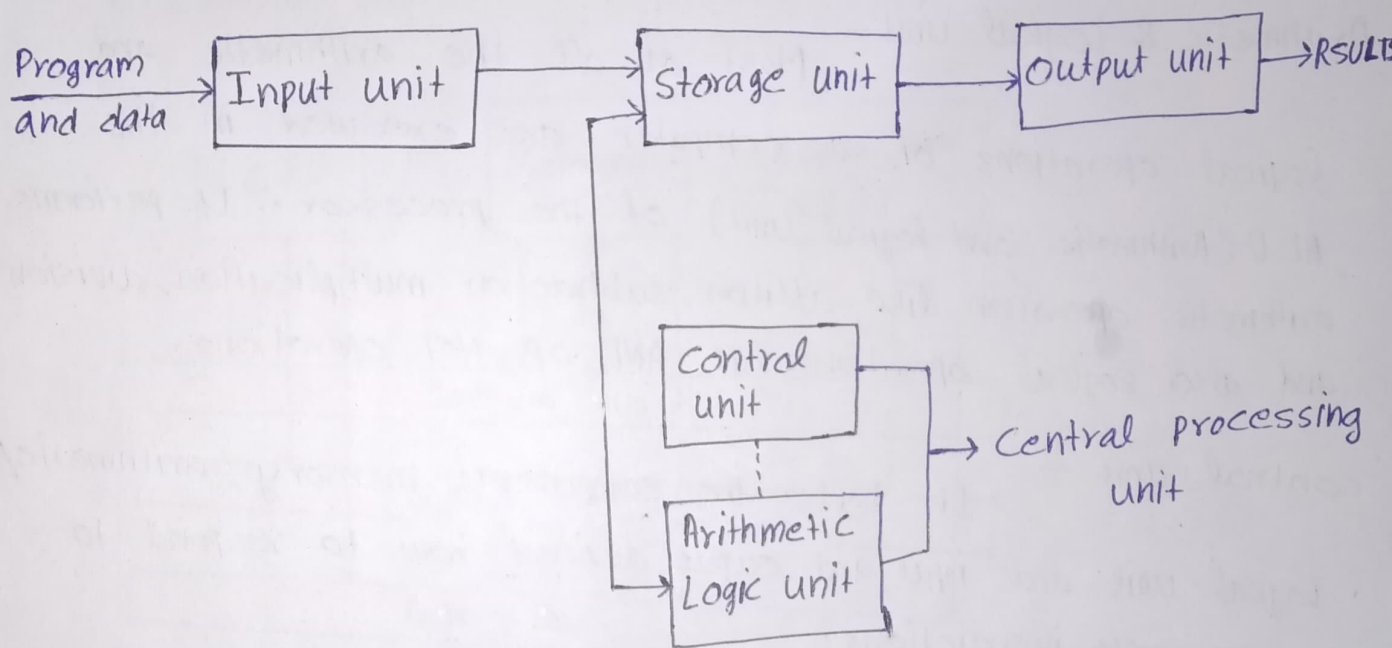 Program
and data
Input unit
Storage unit
Output unit
RSULTS
Control
unit
Arithmetic
Logic unit
Central processing
unit